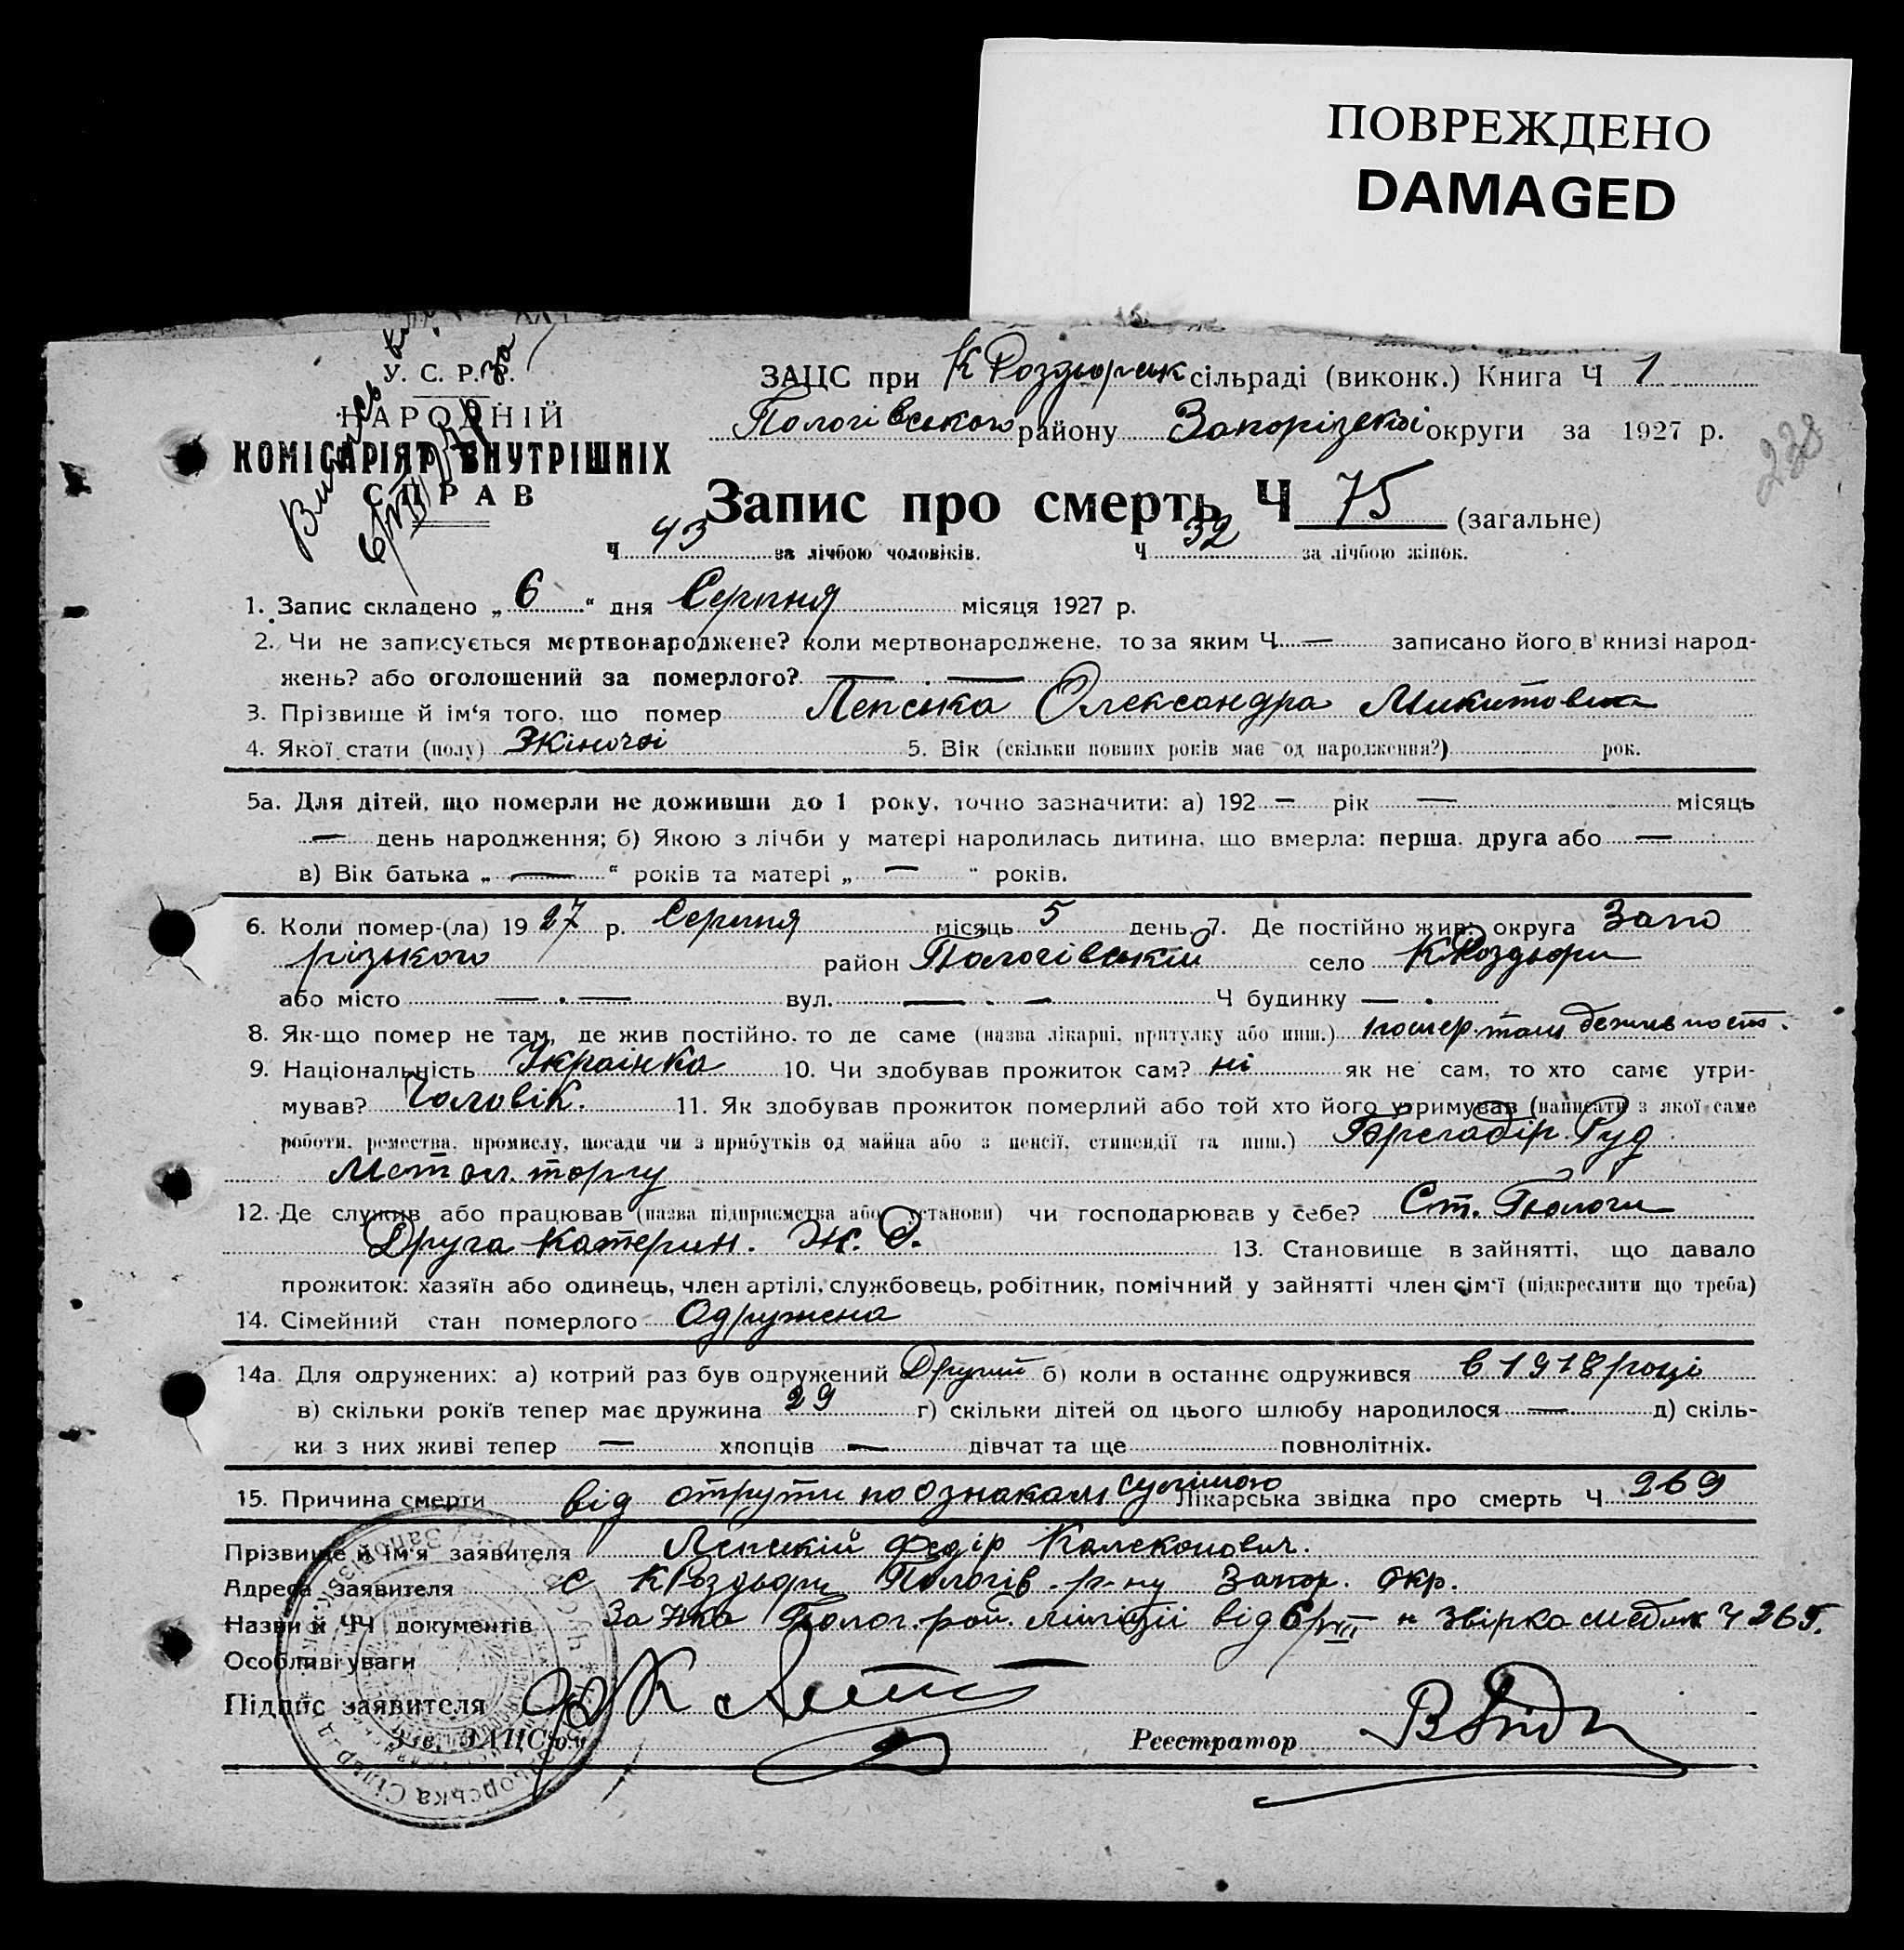 ПОВРЕЖДЕНО
DAMAGED
У. С. Р. Р.
НАРОДНІЙ
КОМІСАРІЯТ ВНУТРІШНІХ
СПРАВ
ЗАЦС при К Роздорськ сільраді (виконк.) Книга Ч 1
Пологівського району Запорізької округи за 1927 р.
228
Запис про смерть Ч 75 (загальне)
Ч 43 за лічбою чоловіків. Ч 32 за лічбою жінок.
1. Запис складено „ 6 “ дня Серпня місяця 1927 р.
2. Чи не записується мертвонароджене? коли мертвонароджене, то за яким Ч — записано його в книзі народ-
жень? або оголошений за померлого? — . —
3. Прізвище й ім‘я того, що помер Лепська Олександра Микитовна
4. Якої стати (полу) Жіночої 5. Вік (скільки повних років має од народження?) рок.
5а. Для дітей, що померли не доживши до 1 року, точно зазначити: а) 192 — рік — місяць
— день народження; б) Якою з лічби у матері народилась дитина, що вмерла: перша, друга або —
в) Вік батька „ — “ років та матері „ — “ років.
6. Коли помер-(ла) 19 27 р. Серпня місяць 5 день. 7. Де постійно жив: округа Запо
різького район Пологівський село К Роздори
або місто — . — вул. — . — Ч будинку — .
8. Як-що помер не там, де жив постійно, то де саме (назва лікарні, притулку або инш.) помер. там де жив пост.
9. Національність Українка 10. Чи здобував прожиток сам? ні як не сам, то хто саме утри-
мував? Чоловік. 11. Як здобував прожиток померлий або той хто його утримував (написати з якої саме
роботи, ремества, промислу, посади чи з прибутків од майна або з пенсії, стипендії та инш.) Руд
Метал. торгу
12. Де служив або працював (назва підприємства або установи) чи господарював у себе? Ст. Пологи
Друга Катерин. ж. д. 13. Становище в зайнятті, що давало
прожиток: хазяїн або одинець, член артілі, службовець, робітник, помічний у зайнятті член сім‘ї (підкреслити що треба)
14. Сімейний стан померлого Одружена
14а. Для одружених: а) котрий раз був одружений Другий б) коли в останнє одружився в 1918 році
в) скільки років тепер має дружина 29 г) скільки дітей од цього шлюбу народилося — д) скіль-
ки з них живі тепер — хлопців — дівчат та ще повнолітніх.
15. Причина смерти від отрути по ознакам сулімою Лікарська звідка про смерть Ч 269
Прізвище й ім‘я заявителя Лепський Федір
Адреса заявителя с К Роздори Пологів. р-ну Запор. Окр.
Назви й ЧЧ документів Полог. рай. міліції від 6/VIII
Особливі уваги
Підпис заявителя
Зав. ЗАЦС‘ом
Реєстратор